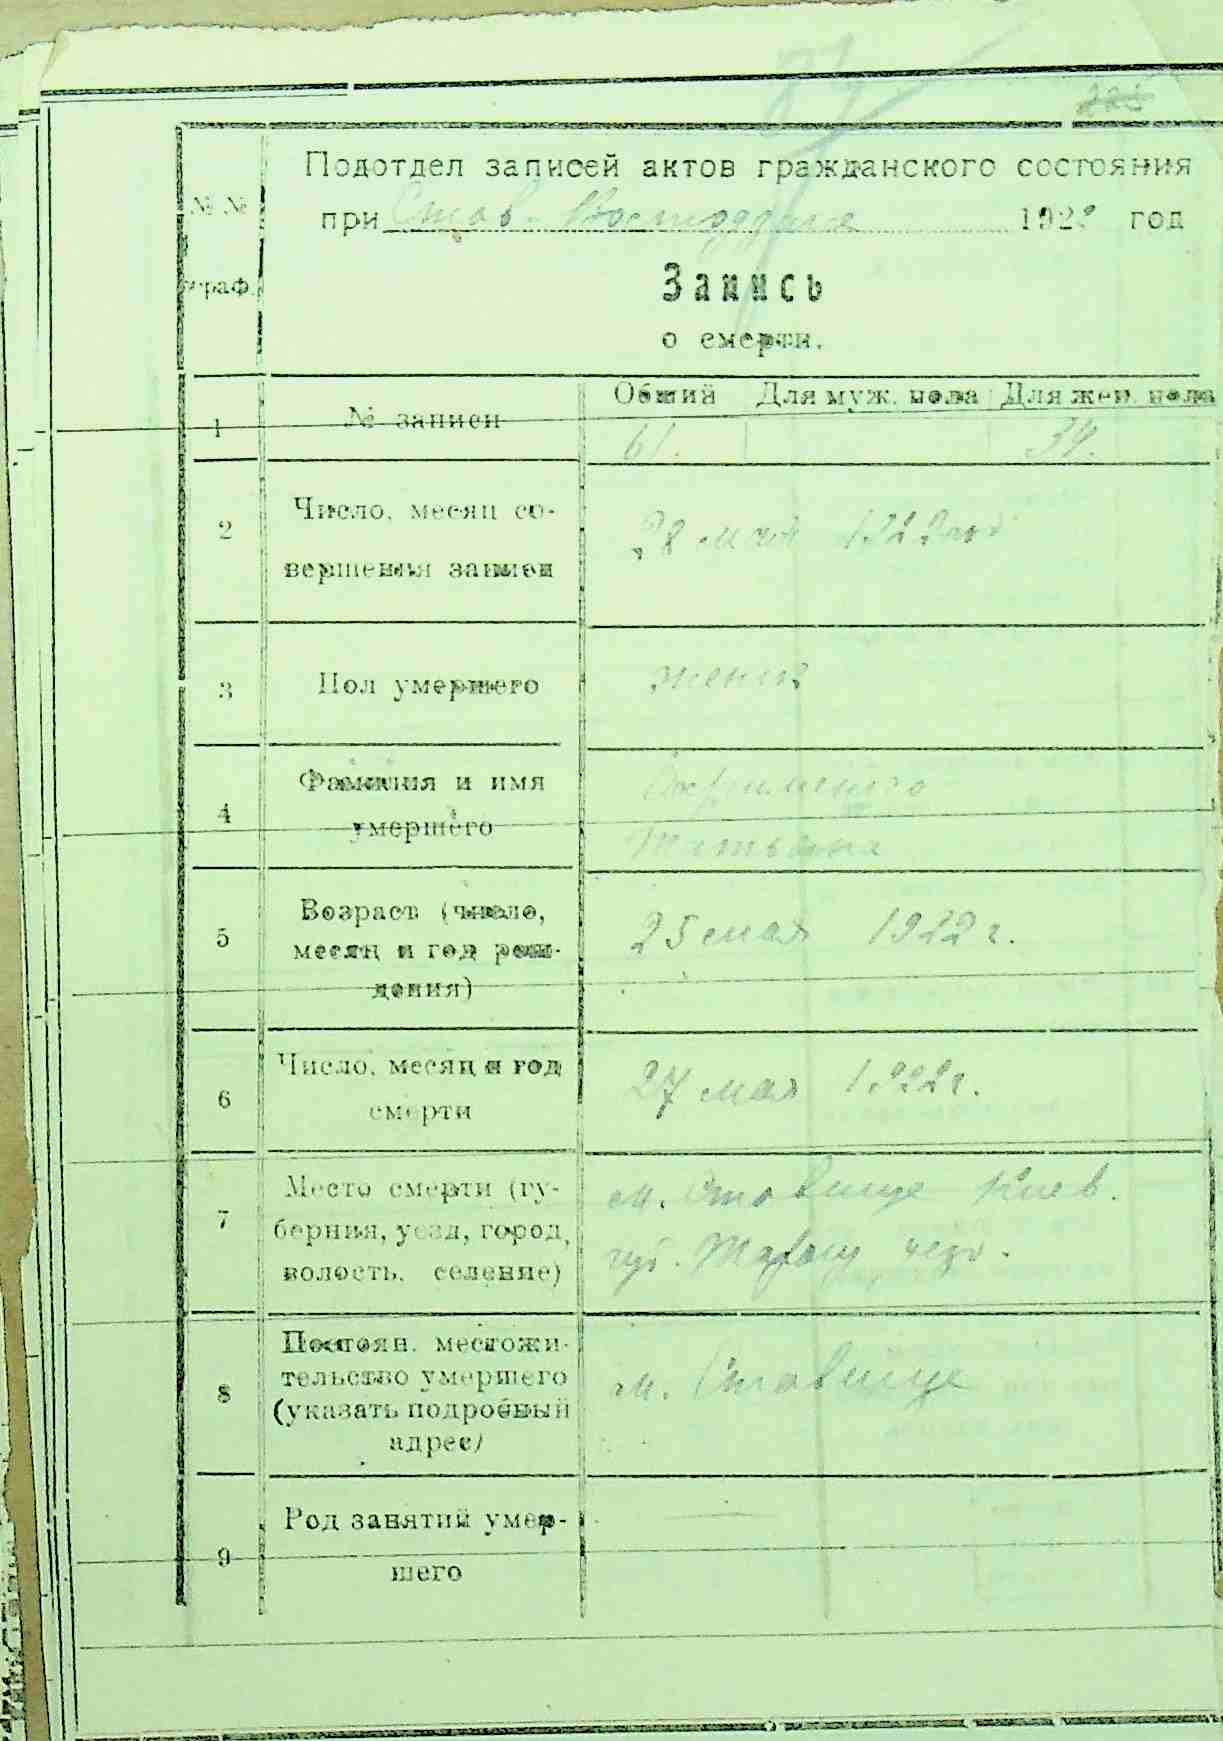 Подотдел записей актов гражданского состояния
при Став. 1922 год
№ №
граф.
Запись
о смерти.
Общий Для муж. пола Для жен. пола
1 № записи 61. 34.
2 Число, месяц со-
вершения записи 28 мая 1922 год
3 Пол умершего женск
4 Фамилия и имя
умершего Татьяна
5 Возраст (число,
месяц и год рож-
дения) 25 мая 1922 г.
6 Число, месяц и год
смерти 27 мая 1922 г.
7 Место смерти (гу-
берния, уезд, город,
волость, селение) м. Ставище Киев.
губ. Таращ уезд.
8 Постоян. местожи-
тельство умершего
(указать подробный
адрес) м. Ставище
9 Род занятий умер-
шего —